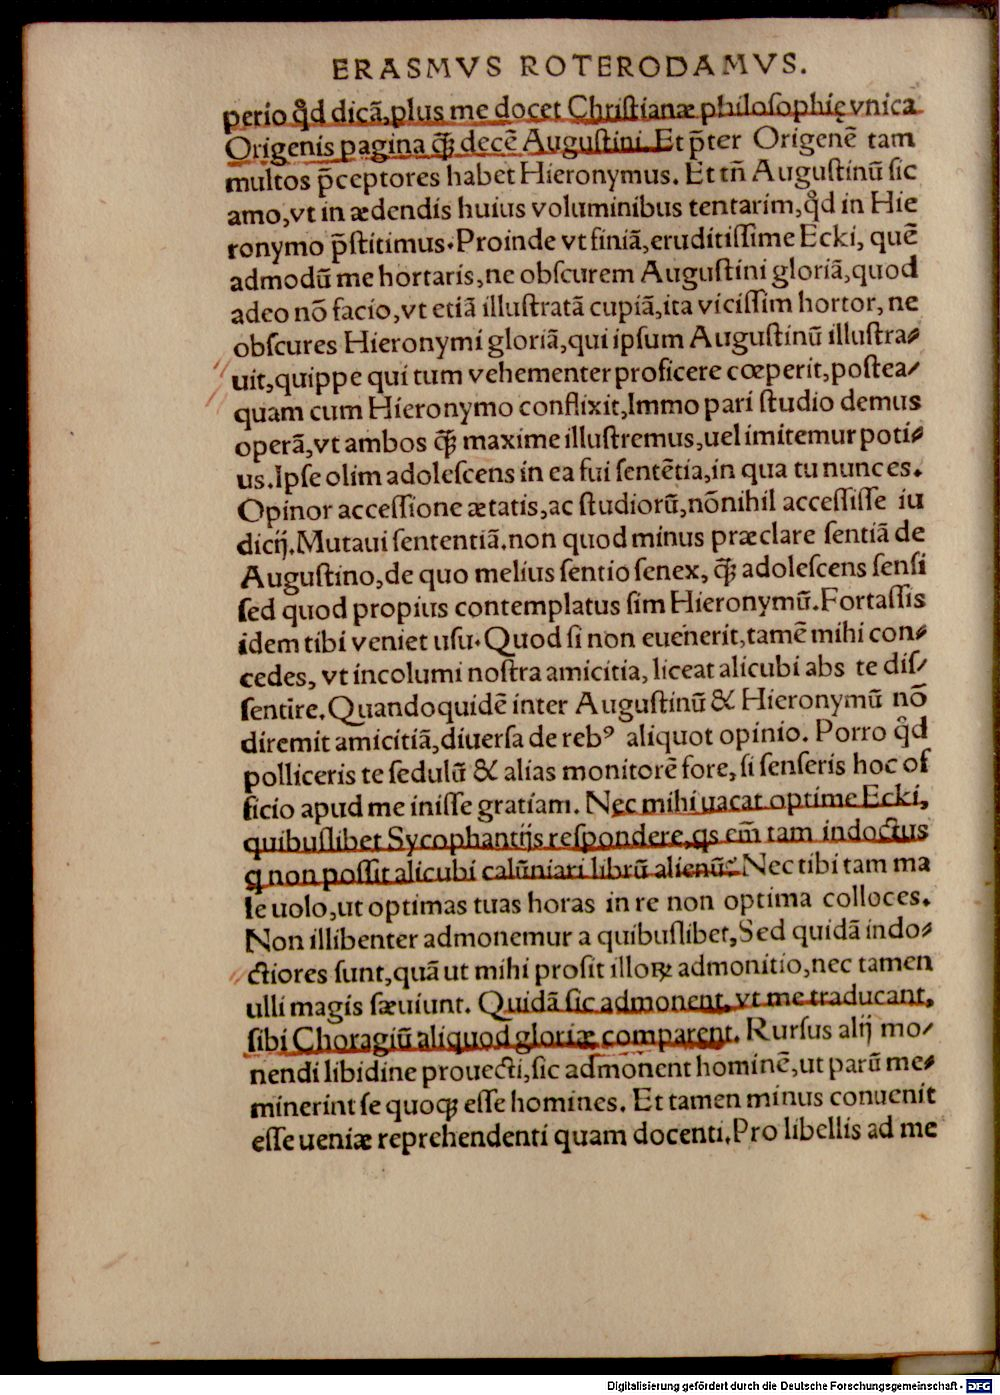 ERASMVS ROTERODAMVS.
perio qd̉ dicã, plus me docet Christianæ philosophię vnica
Origenis pagina q̃ȝ decẽ Augustini. Et p̃ter Origenẽ tam
multos p̃ceptores habet Hieronymus. Et tñ Augustinũ sic
amo, vt in ædendis huius voluminibus tentarim, qd̉ in Hie
ronymo p̃stitimus. Proinde vt finiã, eruditissime Ecki, quẽ
admodũ me hortaris, ne obscurem Augustini gloriã, quod
adeo nõ facio, vt etiã illustratã cupiã, ita vicissim hortor, ne
obscures Hieronymi gloriã, qui ipsum Augustinũ illustra⸗
uit, quippe qui tum vehementer proficere cœperit, postea⸗
quam cum Hieronymo conflixit, Immo pari studio demus
operã, vt ambos q̃ȝ maxime illustremus, uel imitemur poti⸗
us. Ipse olim adolescens in ea fui sentẽtia, in qua tu nunc es.
Opinor accessione ætatis, ac studiorũ, nõnihil accessisse iu
dicij. Mutaui sententiã. non quod minus præclare sentiã de
Augustino, de quo melius sentio senex, q̃ȝ adolescens sensi
sed quod propius contemplatus sim Hieronymũ. Fortassis
idem tibi veniet usu. Quod si non euenerit, tamẽ mihi con⸗
cedes, vt incolumi nostra amicitia, liceat alicubi abs te dis⸗
sentire. Quandoquidẽ inter Augustinũ & Hieronymũ nõ
diremit amicitiã, diuersa de rebꝰ aliquot opinio. Porro qd̉
polliceris te sedulũ & alias monitorẽ fore, si senseris hoc of
ficio apud me inisse gratiam. Nec mihi uacat optime Ecki,
quibuslibet Sycophantijs respondere, qs em̃ tam indoctus
q non possit alicubi calũniari librũ alienũ: Nec tibi tam ma
le uolo, ut optimas tuas horas in re non optima colloces.
Non illibenter admonemur a quibuslibet, Sed quidã indo⸗
ctiores sunt, quã ut mihi prosit illoꝝ admonitio, nec tamen
ulli magis sæuiunt. Quidã sic admonent, vt me traducant,
sibi Choragiũ aliquod gloriæ comparent. Rursus alij mo⸗
nendi libidine prouecti, sic admonent hominẽ, ut parũ me⸗
minerint se quoqȝ esse homines. Et tamen minus conuenit
esse ueniæ reprehendenti quam docenti. Pro libellis ad me
Digitalisierung gefördert durch die Deutsche Forschungsgemeinschaft - DFG